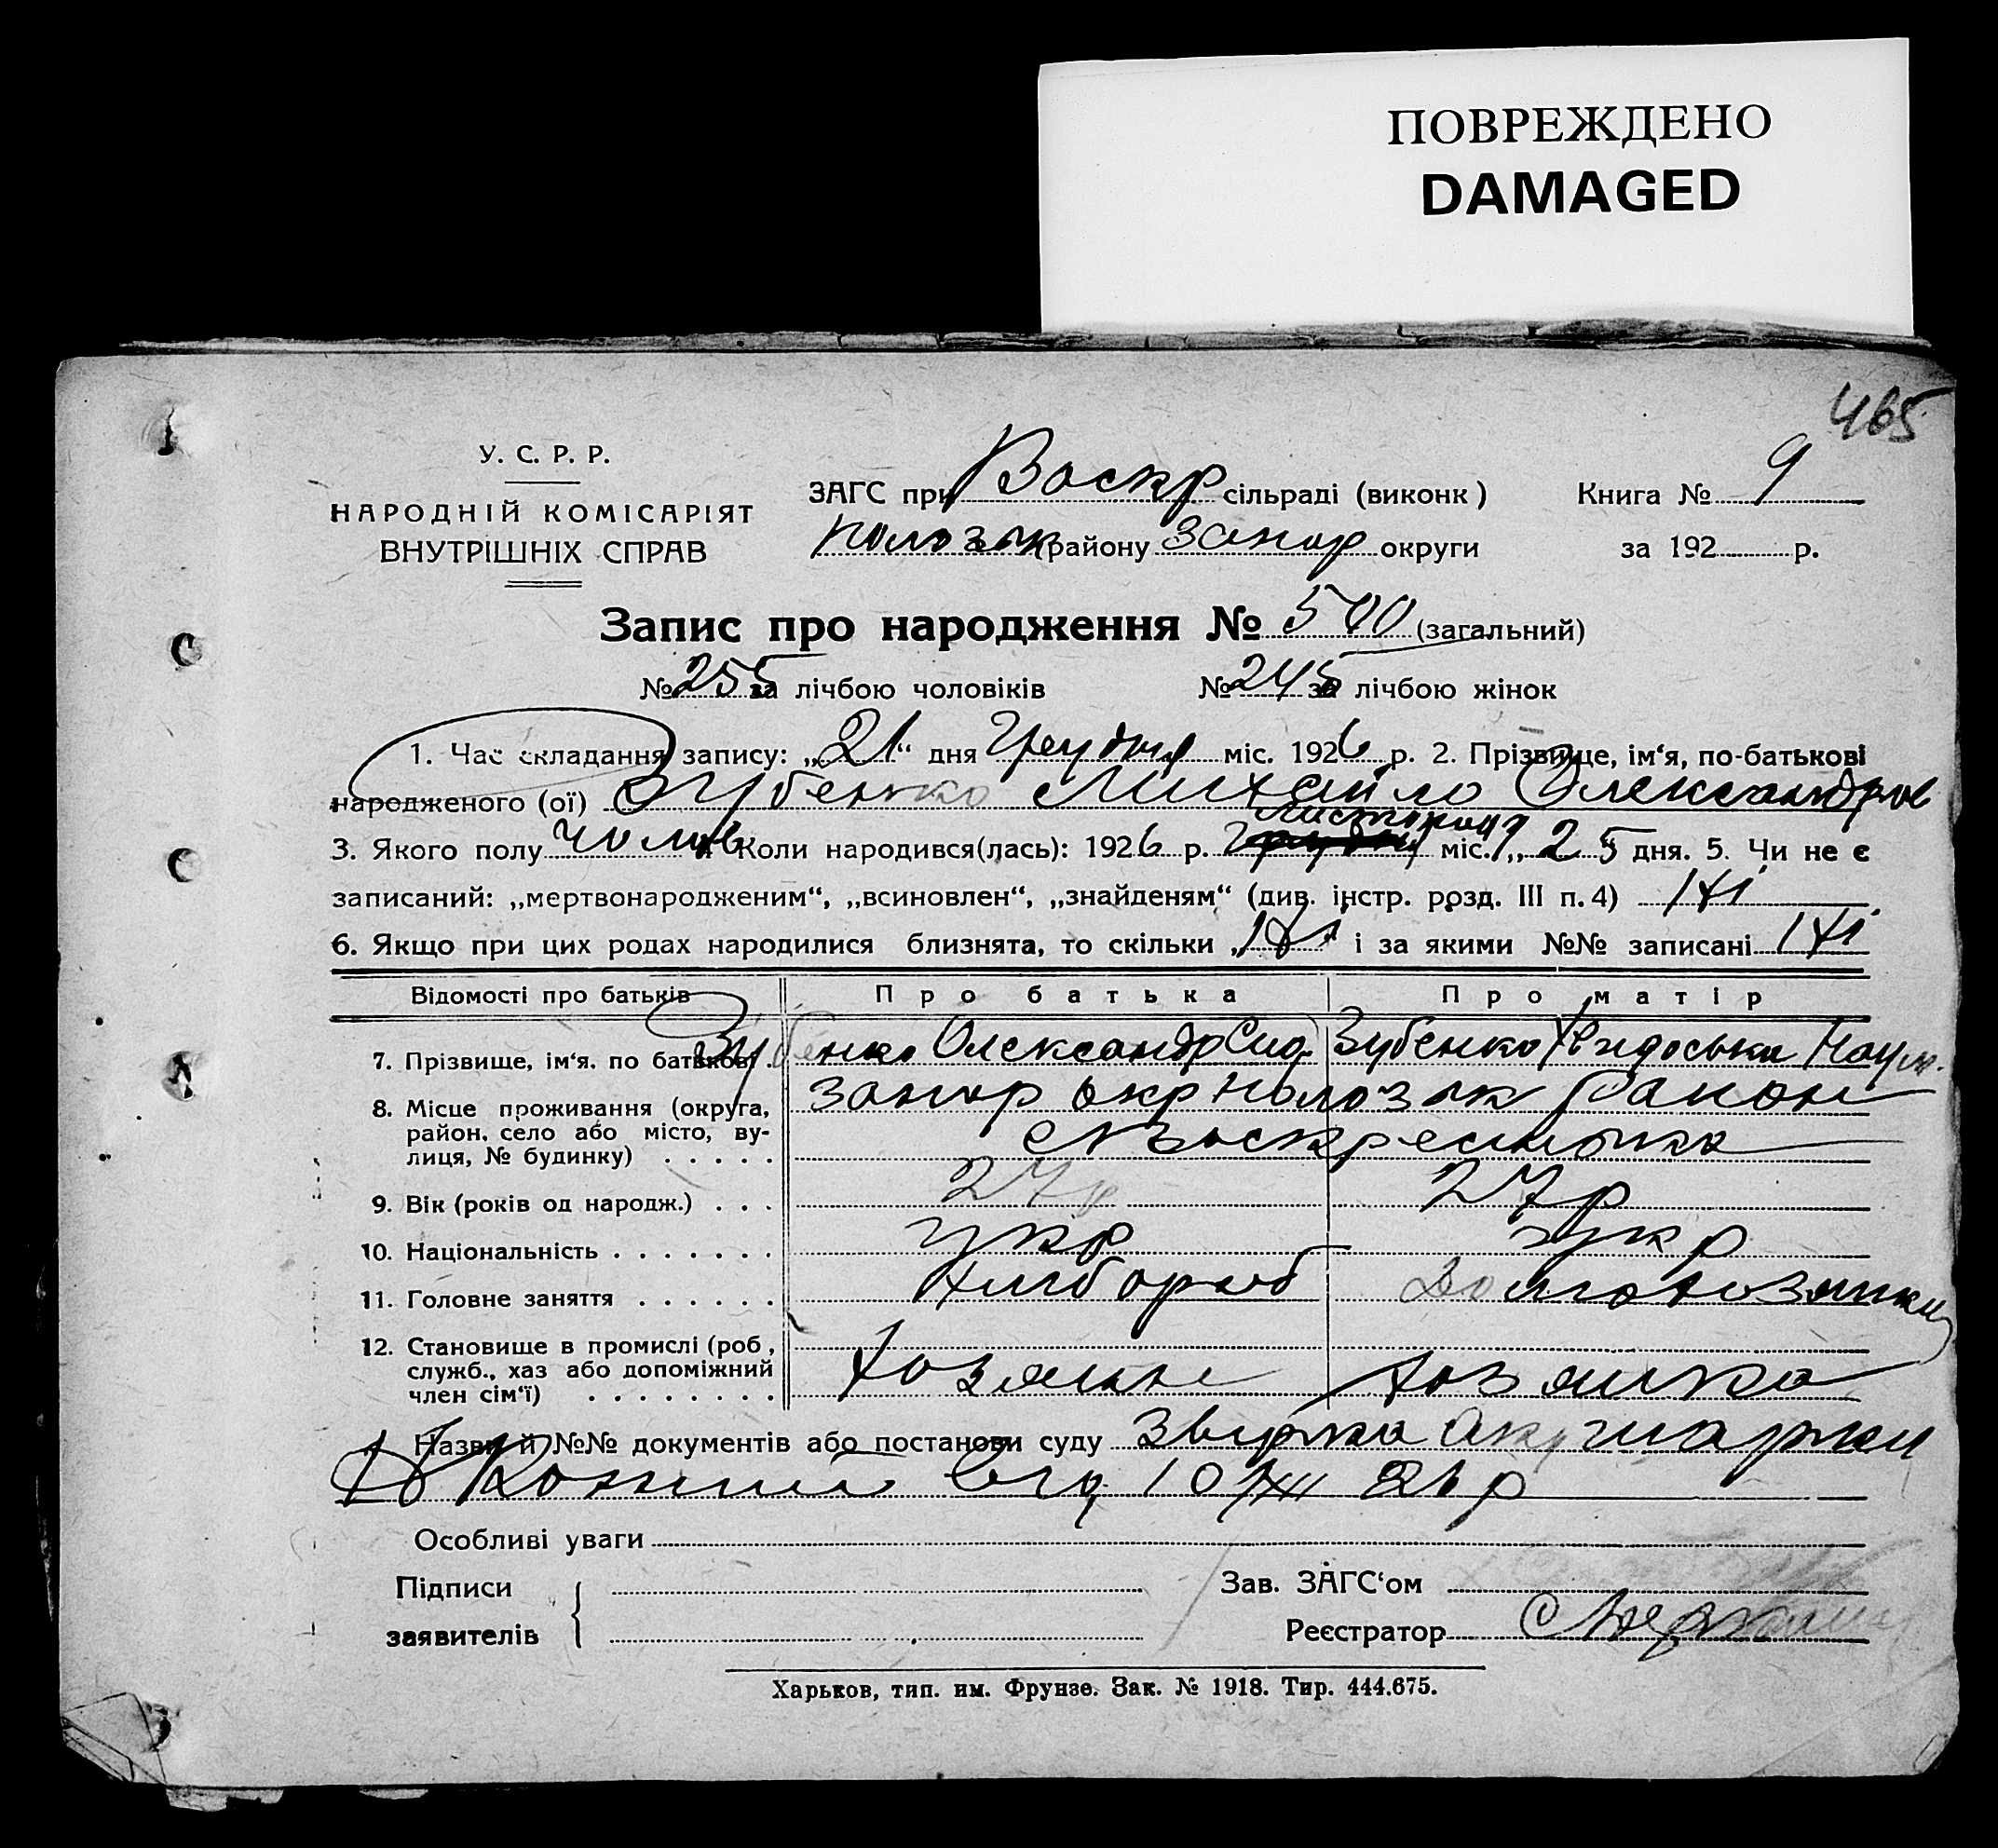 ПОВРЕЖДЕНО
DAMAGED
465
У. С. Р. Р.
НАРОДНІЙ КОМІСАРІЯТ
ВНУТРІШНІХ СПРАВ
ЗАГС при Воскр сільраді (виконк)
Полозьк району Запор округи
Книга № 9
за 192 р.
Запис про народження № 500 (загальний)
№ 255 за лічбою чоловіків № 245 за лічбою жінок
1. Час складання запису: „21“ дня Грудня міс. 1926 р. 2. Прізвище, ім‘я, по-батькові
народженого (ої) Зубенко Михайло Олександров
3. Якого полу чолов 4. Коли народився(лась): 1926 р. Грудня Листопад міс. „25 дня. 5. Чи не є
записаний: „мертвонародженим“, „всиновлен“, „знайденям“ (див. інстр. розд. III п. 4)
6. Якщо при цих родах народилися близнята, то скільки і за якими №№ записані
Відомості про батьків Про батька Про матір
7. Прізвище, ім‘я, по батькові Зубенко Олександр Сид. Зубенко Хвидоська Наум.
8. Місце проживання (округа, район, село або місто, ву-лиця, № будинку) Запор окр Полозьк район
с Воскресенька
9. Вік (років од народж.) 27р 27р
10. Національність укр укр
11. Головне заняття хлібороб домохозяйка
12. Становище в промислі (роб, служб., хаз або допоміжний член сім‘ї) хозяин хозяйка
Назви й №№ документів або постанови суду
від 10/XII 26 р
Особливі уваги
Підписи
заявителів
Зав. ЗАГС‘ом
Реєстратор
Харьков, тип. им. Фрунзе. Зак. № 1918. Тир. 444.675.